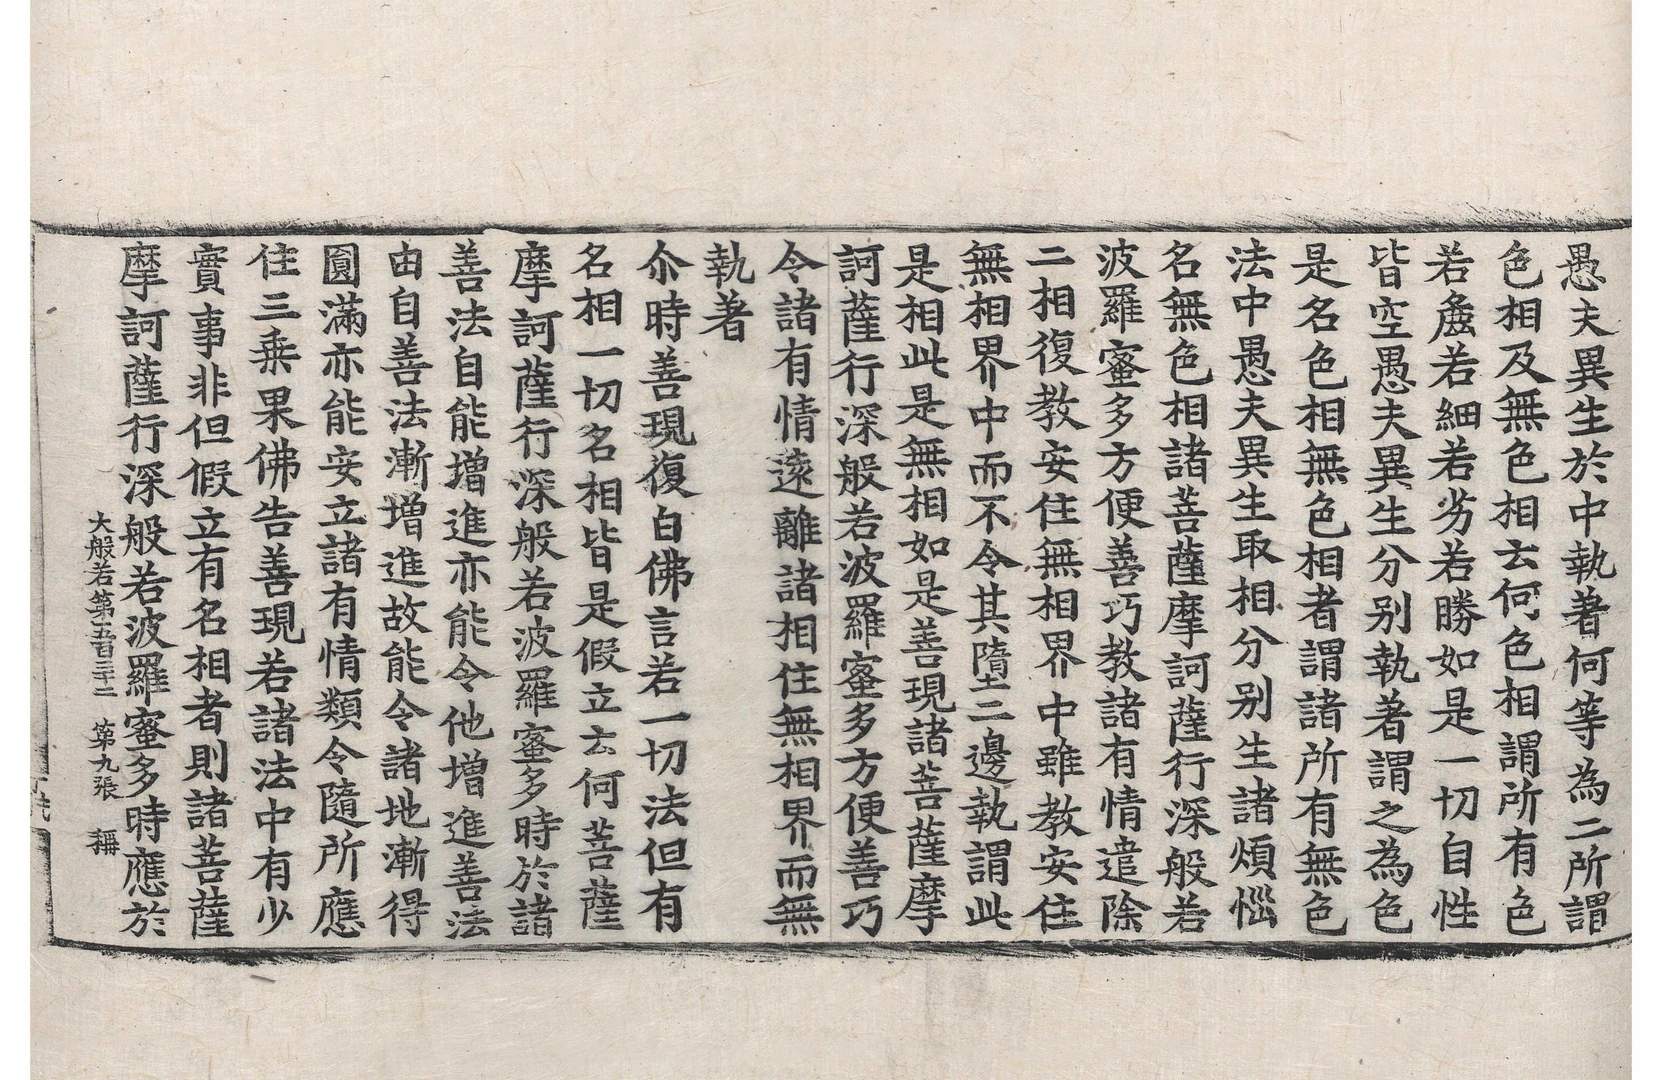 愚夫異生於中執著何等為二所謂
色相及無色相云何色相謂所有色
若麁若細若劣若勝如是一切自性
皆空愚夫異生分別執著謂之為色
是名色相無色相者謂諸所有無色
法中愚夫異生取相分別生諸煩惱
名無色相諸菩薩摩訶薩行深般若
波羅蜜多方便善巧教諸有情遣除
二相復教安住無相界中雖教安住
無相界中而不令其墮二邊執謂此
是相此是無相如是善現諸菩薩摩
訶薩行深般若波羅蜜多方便善巧
令諸有情遠離諸相住無相界而無
執著
尒時善現復白佛言若一切法但有
名相一切名相皆是假立云何菩薩
摩訶薩行深般若波羅蜜多時於諸
善法自能增進亦能令他增進善法
由自善法漸增進故能令諸地漸得
圓滿亦能安立諸有情類令隨所應
住三乗果佛告善現若諸法中有少
實事非但假立有名相者則諸菩薩
摩訶薩行深般若波羅蜜多時應於
大般若第五百三十二 第九張 稱